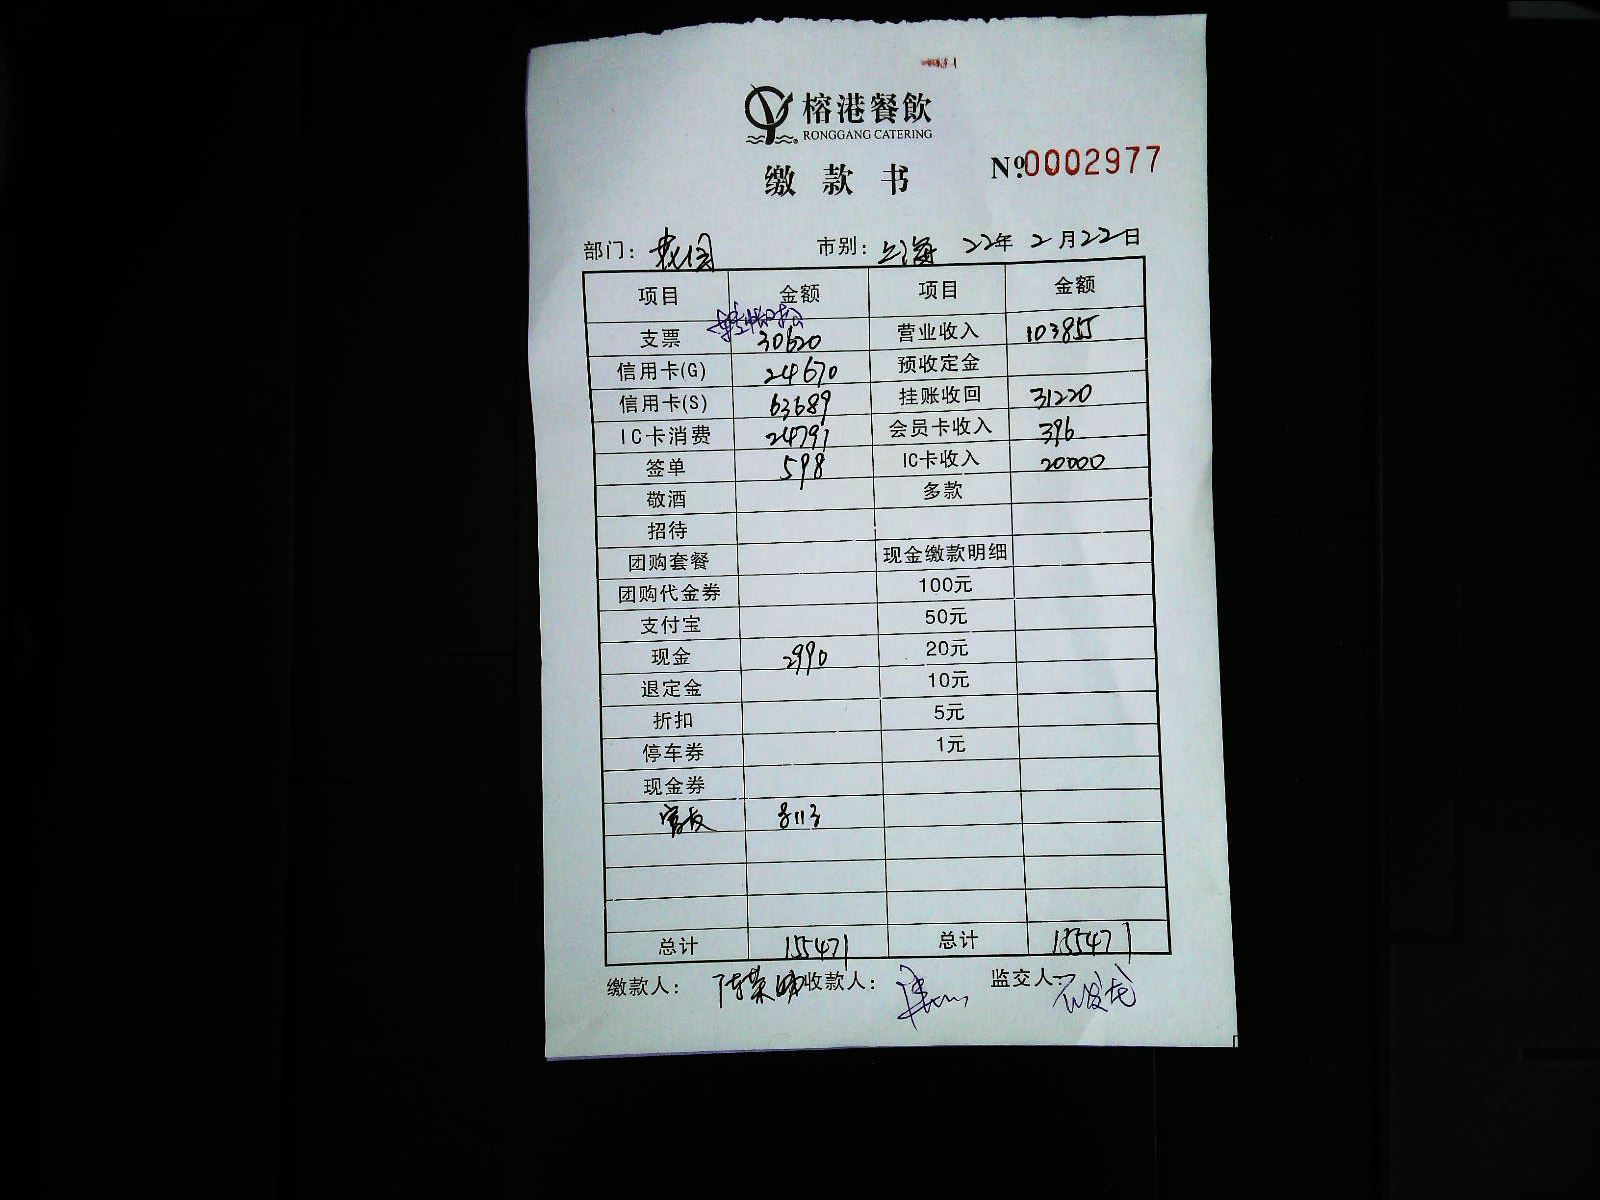 榕港餐飲
RONGGANG CATERING
缴款书 №0002977
部门: 市别: 上海 22年 2月22日
项目 金额 项目 金额
支票 30620 营业收入 103855
信用卡(G) 24670 预收定金
信用卡(S) 63689 挂账收回 31220
IC卡消费 24791 会员卡收入 396
签单 598 IC卡收入 20000
敬酒 多款
招待
团购套餐 现金缴款明细
团购代金券 100元
支付宝 50元
现金 2990 20元
退定金 10元
折扣 5元
停车券 1元
现金券
8113
总计 155471 总计 155471
缴款人: 收款人: 监交人: